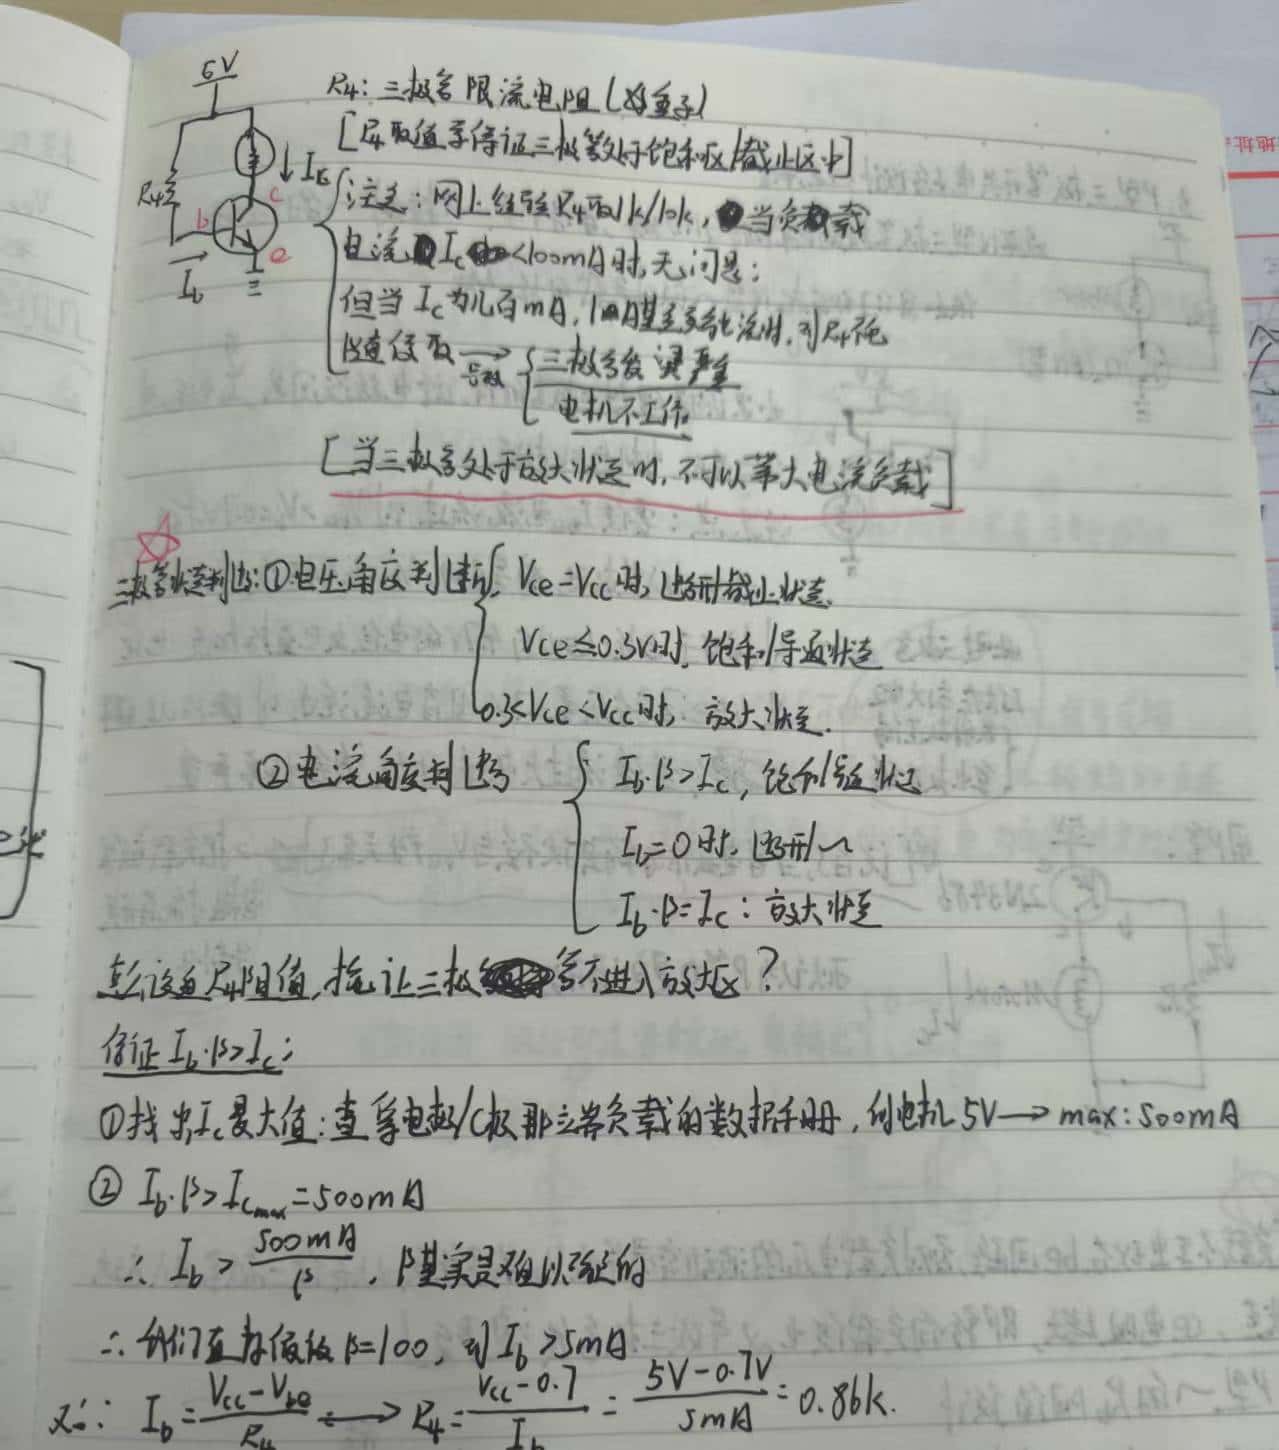 6V
R4: 三极管限流电阻(必重了)
[R4取值要保证三极管处于饱和区/截止区中]
R4
I
b
c
e
Ib
注意: 网上经验R4取1k/10k, 当负载
电流Ic<100mA时, 无问题;
但当Ic为几百mA, 1A甚至多电流时, 则R4不
随便取 →导致
三极管发烫严重
电机不工作.
[当三极管处于放大状态时, 不可以带大电流负载]
三极管状态判断: ①电压角度判断 Vce=Vcc时, 断开/截止状态.
Vce≤0.3V时, 饱和/导通状态
0.3<Vce<Vcc时, 放大状态.
②电流角度判断 Ib·β>Ic, 饱和/导通状态
Ib=0时, 断开~
Ib·β=Ic: 放大状态
怎么设置R4阻值, 能让三极管不进入放大区?
保证Ib·β>Ic:
①找出Ic最大值: 查集电极/C极那边端负载的数据手册, 例电机5V→max: 500mA
② Ib·β>Icmax=500mA
∴ Ib > 500mA/β, β其实是难以确定的
∴ 我们直接假设β=100, 则Ib>5mA
又∵ Ib = (Vcc-Vbe)/R4 ⟷ R4 = (Vcc-0.7)/Ib = (5V-0.7V)/5mA = 0.86k.